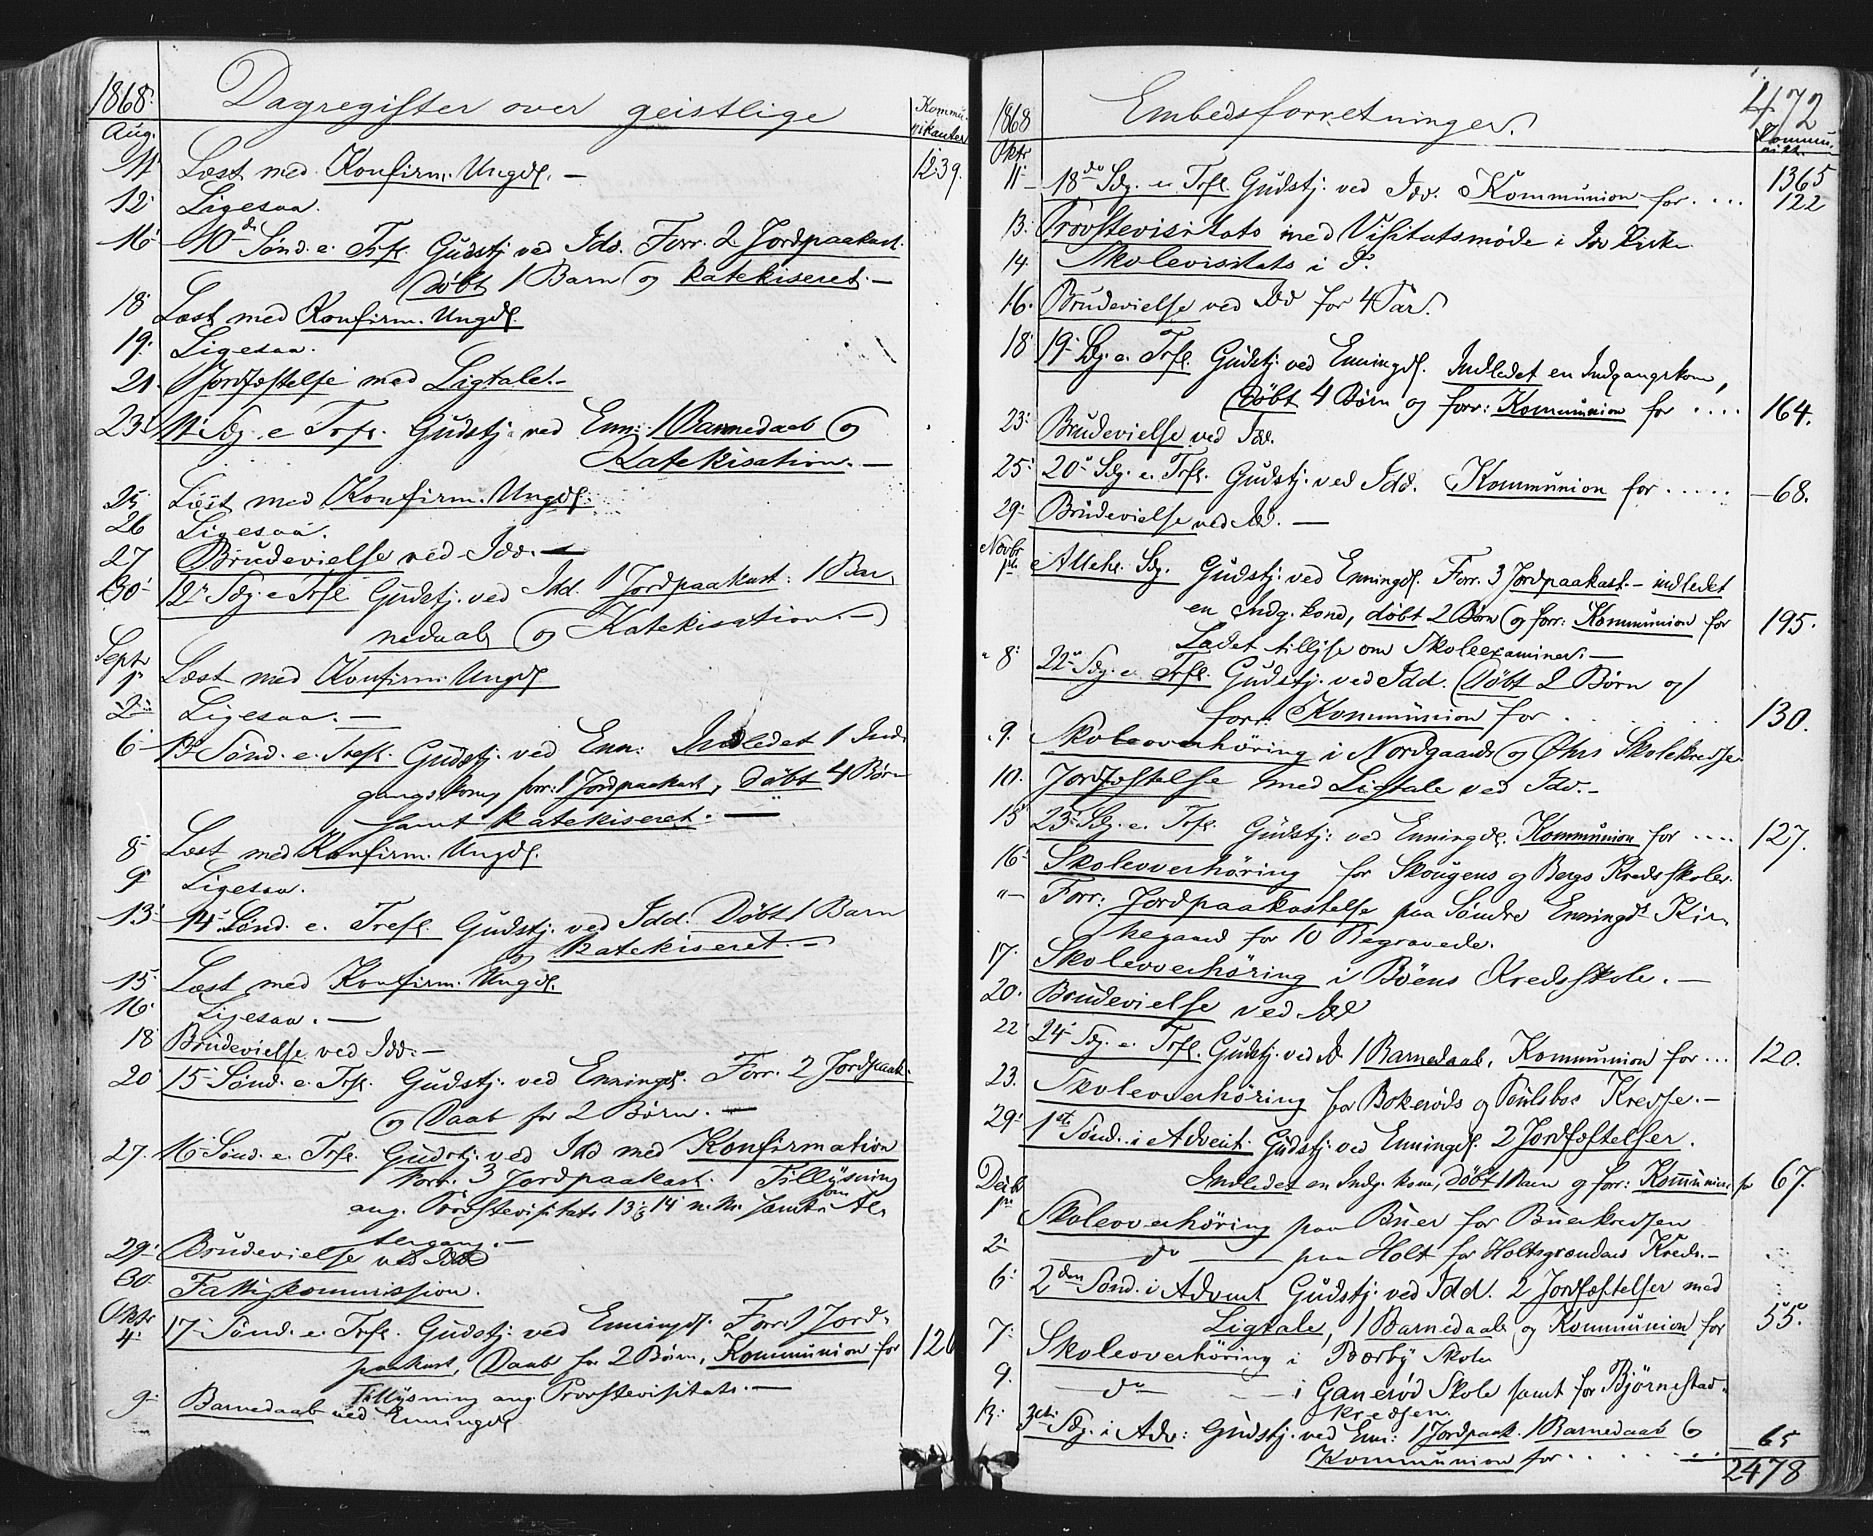 1868. Dagregister over geistlige Kommu-
nikanter
Aug.
11 Læst med Konfirm. Ungd. — 1239.
12 Ligesaa.
16 10de Sønd. e. Trf. Gudstj. ved Idd. Forr. 2 Jordpaakast.
Døbt 1 Barn og katekiseret. —
18 Læst med Konfirm. Ungd.
19. Ligesaa.
21. Jordfæstelse med Ligtale. —
23. 11 Sdg. e Trf. Gudstj. ved Enn: 1 Barnedaab og
Katekisation. —
25 Læst med Konfirm. Ungd.
26 Ligesaa.
27 Brudevielse ved Idd. —
30 12 Sdg. e Trf. Gudstj. ved Idd. 1 Jordpaakast: 1 Bar-
nedaab og Katekisation. —
Septr
1 Læst med Konfirm. Ungd.
2 Ligesaa. —
6 13 Sønd. e. Tref. Gudstj. ved Enn: Indledet 1 Ind-
gangskone, forr: 1 Jordpaakast, døbt 4 Børn
samt katekiseret. —
8 Læst med Konfirm. Ungd.
9 Ligesaa.
13 14 Sønd. e. Tref. Gudstj. ved Idd. Døbt 1 Barn
og katekiseret. —
15 Læst med Konfirm. Ungd.
16 Ligesaa. —
18 Brudevielse ved Idd. —
20 15 Sønd. e. Trf. Gudstj. ved Enningd. Forr. 2 Jordpaak.
og Daab for 2 Børn. —
27. 16 Sønd. e. Trf. Gudstj. ved Idd med Konfirmation
Forr. 3 Jordpaakast. Tillysning
ang. Provstevisitats 13 & 14 n. M. samt om Al-
tergang. —
29 Brudevielse ved Idd
30. Fattigkommission.
Oktr
4 17 Sønd. e. Trf. Gudstj. ved Enningd. Forr. 1 Jord-
paakast, Daab for 2 Børn, Kommunion for 126
Tillysning ang. Provstevisitats. —
9 Barnedaab ved Enningd
1868 Embedsforretninger. 472
Kommu-
nik.
Oktr 1365
11 18de Sdg. e. Trf. Gudstj. ved Idd. Kommunion for .... 122
13. Provstevisitats med Visitatsmøde i Idd Kirke
14. Skolevisitats i d.
16. Brudevielse ved Idd for 4 Par.
18 19 Sdg. e. Trf. Gudstj. ved Enningd. Indledet en Indgangskone,
Døbt 4 Børn og forr: Kommunion for .... 164.
23. Brudevielse ved Idd.
25 20 Sdg. e. Trf. Gudstj. ved Idd. Kommunion for ..... 68.
29 Brudevielse ved Idd. —
Novbr
1 Alleh. Sdg. Gudstj. ved Enningd. Forr. 3 Jordpaakast. - indledet
en Indg. kone, døbt 2 Børn og forr: Kommunion for 195.
Ladet tillyse om Skoleexaminer. —
8 22 Sdg. e. Trf. Gudstj. ved Idd. Døbt 2 Børn og
forr. Kommunion for .... 130.
9. Skoleoverhöring i Nordgaards og Öhrs Skolekredse
10. Jordfæstelse med Ligtale ved Idd. -
15 23 Sdg. e. Trf. Gudstj: ved Enningd. Kommunion for .... 127.
16 Skoleoverhöring for Skougens og Bergs Kredsskoler.
"— Forr. Jordpaakastelse paa Søndre Enningd. Kir-
kegaard for 10 Begravede.
17. Skoleoverhöring i Böens Kredsskole. —
20. Brudevielse ved Idd
22 24 Sdg. e. Trf. Gudstj. ved Id. 1 Barnedaab, Kommunion for ... 120.
23. Skoleoverhöring for Bokerøds og Poulsbos Kredse. —
29 1ste Sønd. i Advent. Gudstj. ved Enningd. 2 Jordfæstelser.
Indledet en Indg. kone, døbt 1 Barn og forr: Kommunion for 67.
Decbr
1 Skoleoverhöring paa Buer for Buerkredsen
2 — do — paa Holt for Holtsgrændens Kreds. —
6 2den Sønd. i Advent Gudstj. ved Idd. 2 Jordfæstelser med
Ligtale, 1 Barnedaab og Kommunion for 55.
7 Skoleoverhöring i Bærby Skole
9. — do — i Ganerød Skole samt for Björnestad-
kredsen.
13. 3die Sdg. i Adv: Gudstj. ved Enn: 1 Jordpaak. 1 Barnedaab og
Kommunion for .... 65
2478